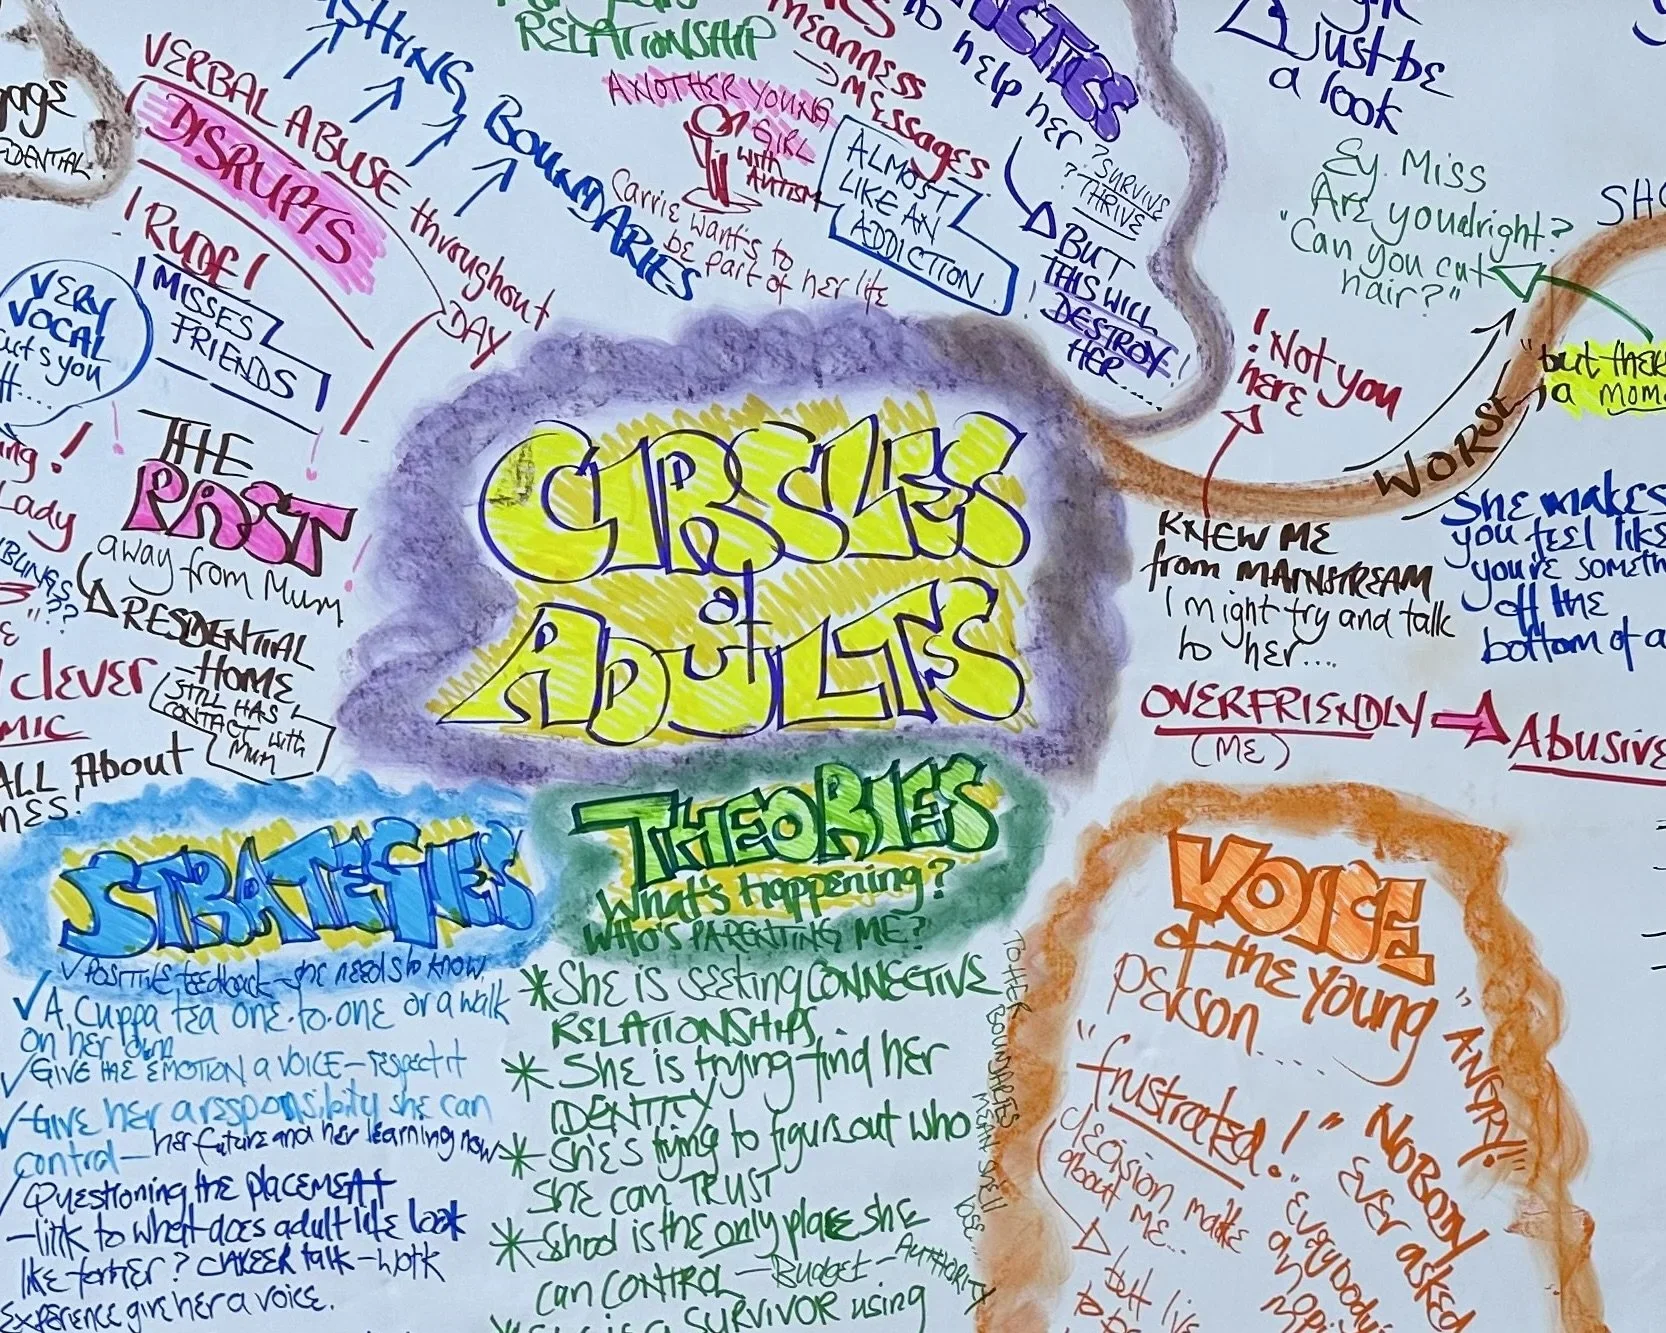 RELATIONSHIP
MEANNESS
→ MESSAGES
to help her
Just be
a look
VERBAL ABUSE throughout
DAY
DISRUPTS
BOUNDARIES
ANOTHER YOUNG
GIRL
with
AUTISM
Carrie wants to
be part of her life
ALMOST
LIKE AN
ADDICTION
? SURVIVE
? THRIVE
BUT
THIS WILL
DESTROY
HER...
!
Ey Miss
Are you alright?
"Can you cut
hair?"
! RUDE!
MISSES
FRIENDS
VERY
VOCAL
! Not you
here
WORSE
THE
PAST
away from Mum
RESIDENTIAL
HOME
STILL HAS
CONTACT with
Mum
Lady
clever
ALL About
CIRCLES
of
ADULTS
KNEW ME
from MAINSTREAM
I might try and talk
to her....
She makes
you feel like
you're
off the
bottom of a
OVERFRIENDLY → Abusive
(ME)
STRATEGIES
✓ POSITIVE feedback - she needs to know.
✓ A Cuppa tea one-to-one or a walk
on her own
✓ GIVE THE EMOTION A VOICE - respect it
✓ Give her a responsibility she can
control - her future and her learning now
Questioning the placement
- link to what does adult life look
like for her? CAREER talk - work
EXPERIENCE give her a voice.
THEORIES
What's Happening?
WHO'S PARENTING ME?
* She is seeking CONNECTIVE
RELATIONSHIPS
* She is trying find her
IDENTITY
* She's trying to figure out who
she can TRUST
* School is the only place she
can CONTROL - Budget - AUTHORITY
is a SURVIVOR using
TO HER BOUNDARIES
MEAN SHE'LL
LOSE
VOICE
of the Young
Person....
"ANGRY!!"
"frustrated!"
decision make
about ME...
NOBODY
EVER asked
"Everybody